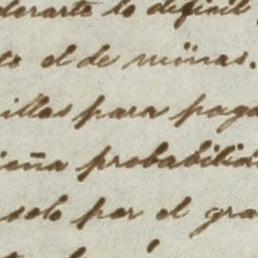 derarte lo dificil
to el de minas.
illas para paga
eña probabilida
solo por el gra